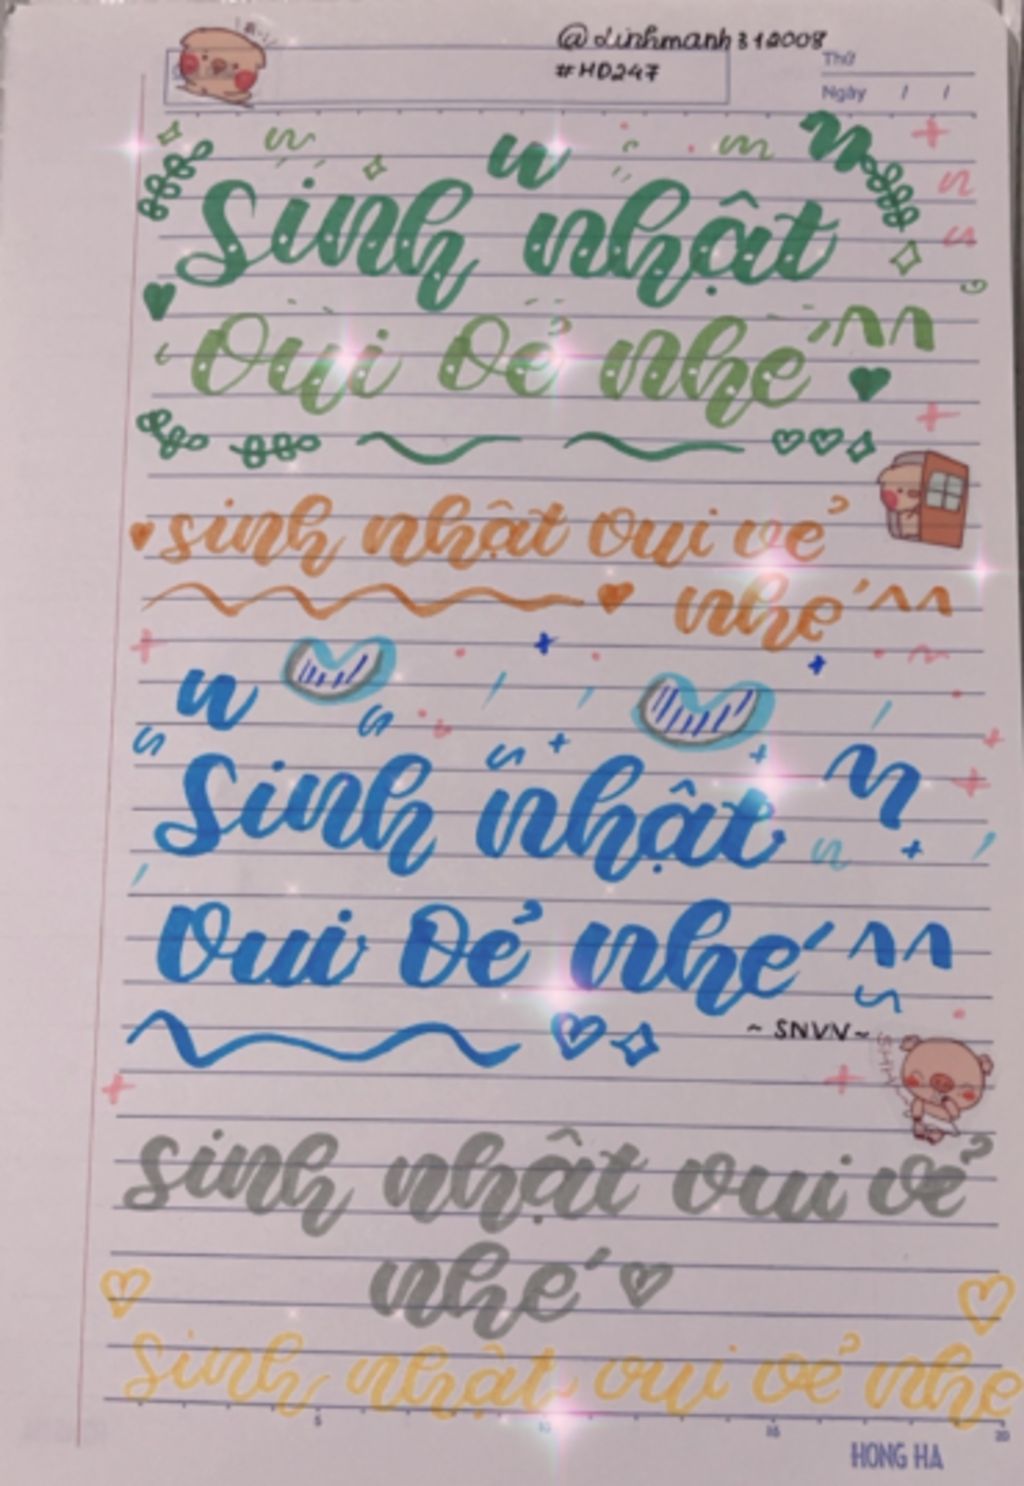 @linhmanh312008
#HD247
Thứ
Ngày / /
Sinh nhật
Vui Vẻ nhé ^^
sinh nhật vui vẻ
nhé ^^
Sinh nhật
Vui Vẻ nhé ^^
~ SNVV ~
sinh nhật vui vẻ
nhé
sinh nhật vui vẻ nhé
5 10 15 20
HONG HA